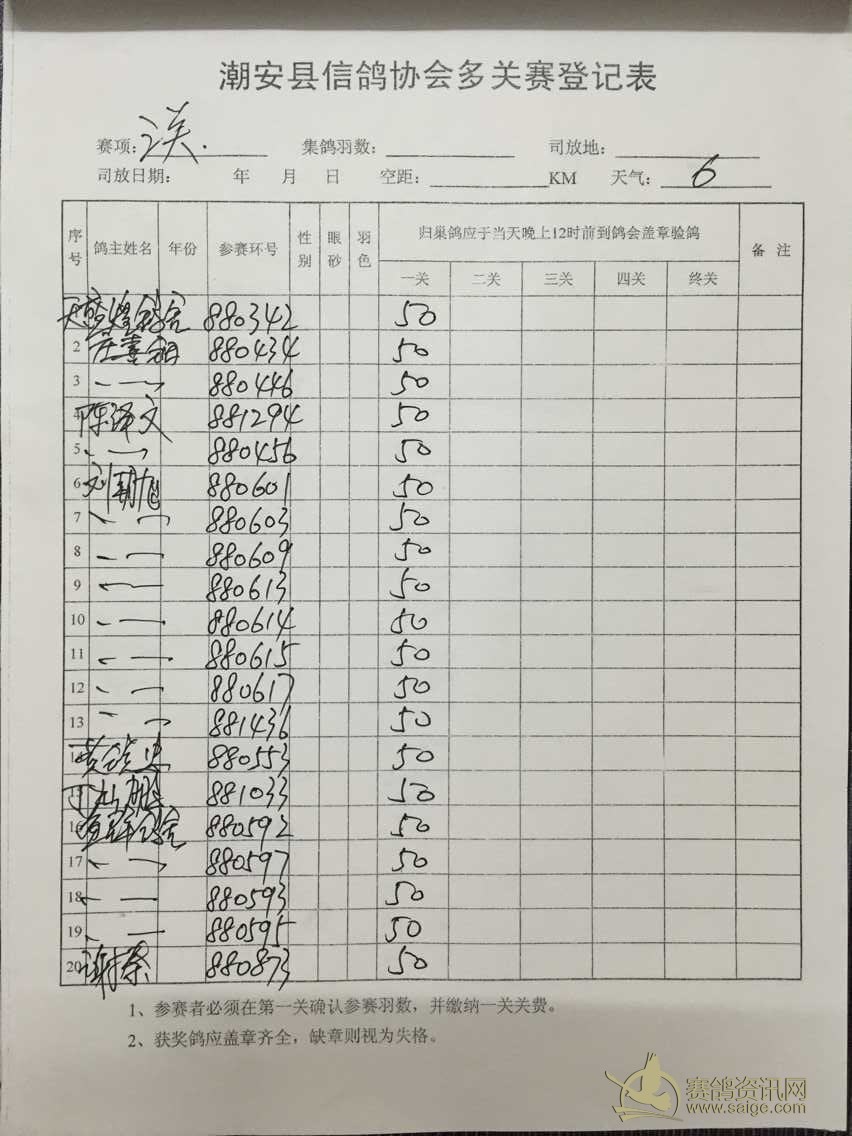 潮安县信鸽协会多关赛登记表
赛项: 关. 集鸽羽数: 司放地:
司放日期: 年 月 日 空距: KM 天气: 6
序号 鸽主姓名 年份 参赛环号 性别 眼砂 羽色 归巢鸽应于当天晚上12时前到鸽会盖章验鸽 备 注
一关 二关 三关 四关 终关
880342 50
2 880434 50
3 880446 50
4 陈泽文 881294 50
5 880456 50
6 刘 880601 50
7 880603 50
8 880609 50
9 880613 50
10 880614 50
11 880615 50
12 880617 50
13 881436 50
黄 880553 50
881033 50
16 880592 50
17 880597 50
18 880593 50
19 880595 50
20 谢 880873 50
1、参赛者必须在第一关确认参赛羽数，并缴纳一关关费。
2、获奖鸽应盖章齐全，缺章则视为失格。
赛鸽资讯网
www.saige.com